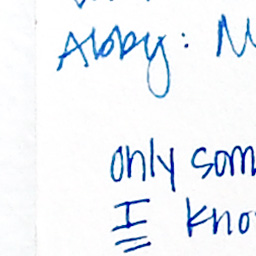 Abby: M
only som
I kno